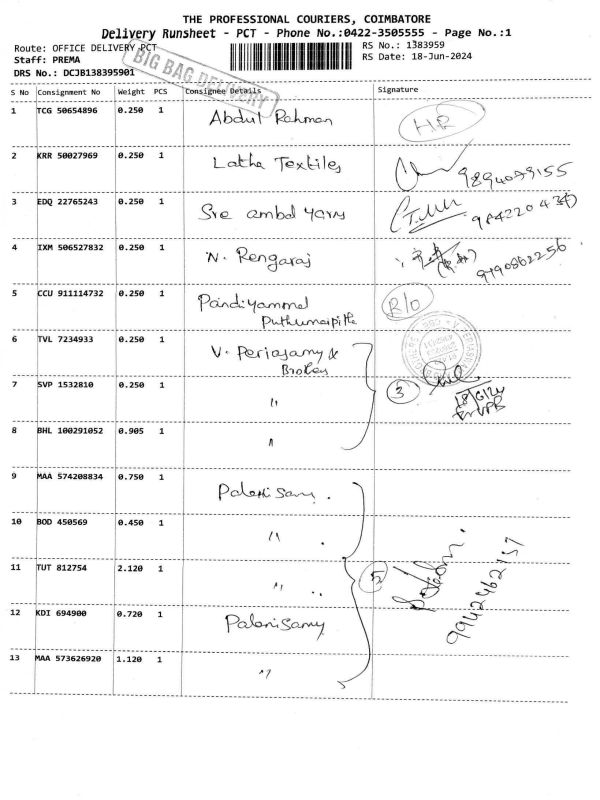 THE PROFESSIONAL COURIERS, COIMBATORE
Delivery Runsheet - PCT - Phone No.:0422-3505555 - Page No.:1
Route: OFFICE DELIVERY PCT
RS No.: 1383959
Staff: PREMA
RS Date: 18-Jun-2024
DRS No.: DCJB138395901
BIG BAG DELIVERY
S No Consignment No Weight PCS Consignee Details Signature
1 TCG 50654896 0.250 1 Abdul Rahman
2 KRR 50027969 0.250 1 Latha Textiles 9894099155
3 EDQ 22765243 0.250 1 Sre ambal yarns
4 IXM 506527832 0.250 1 N. Rengaraj 9790862256
5 CCU 911114732 0.250 1 Pandiyammal R/O
6 TVL 7234933 0.250 1 V. Periasamy &
7 SVP 1532810 0.250 1 " 3
8 BHL 100291052 0.905 1 "
9 MAA 574208834 0.750 1 Palanisamy.
10 BOD 450569 0.450 1 "
11 TUT 812754 2.120 1 " 5
12 KDI 694900 0.720 1 Palanisamy 9942462157
13 MAA 573626920 1.120 1 "